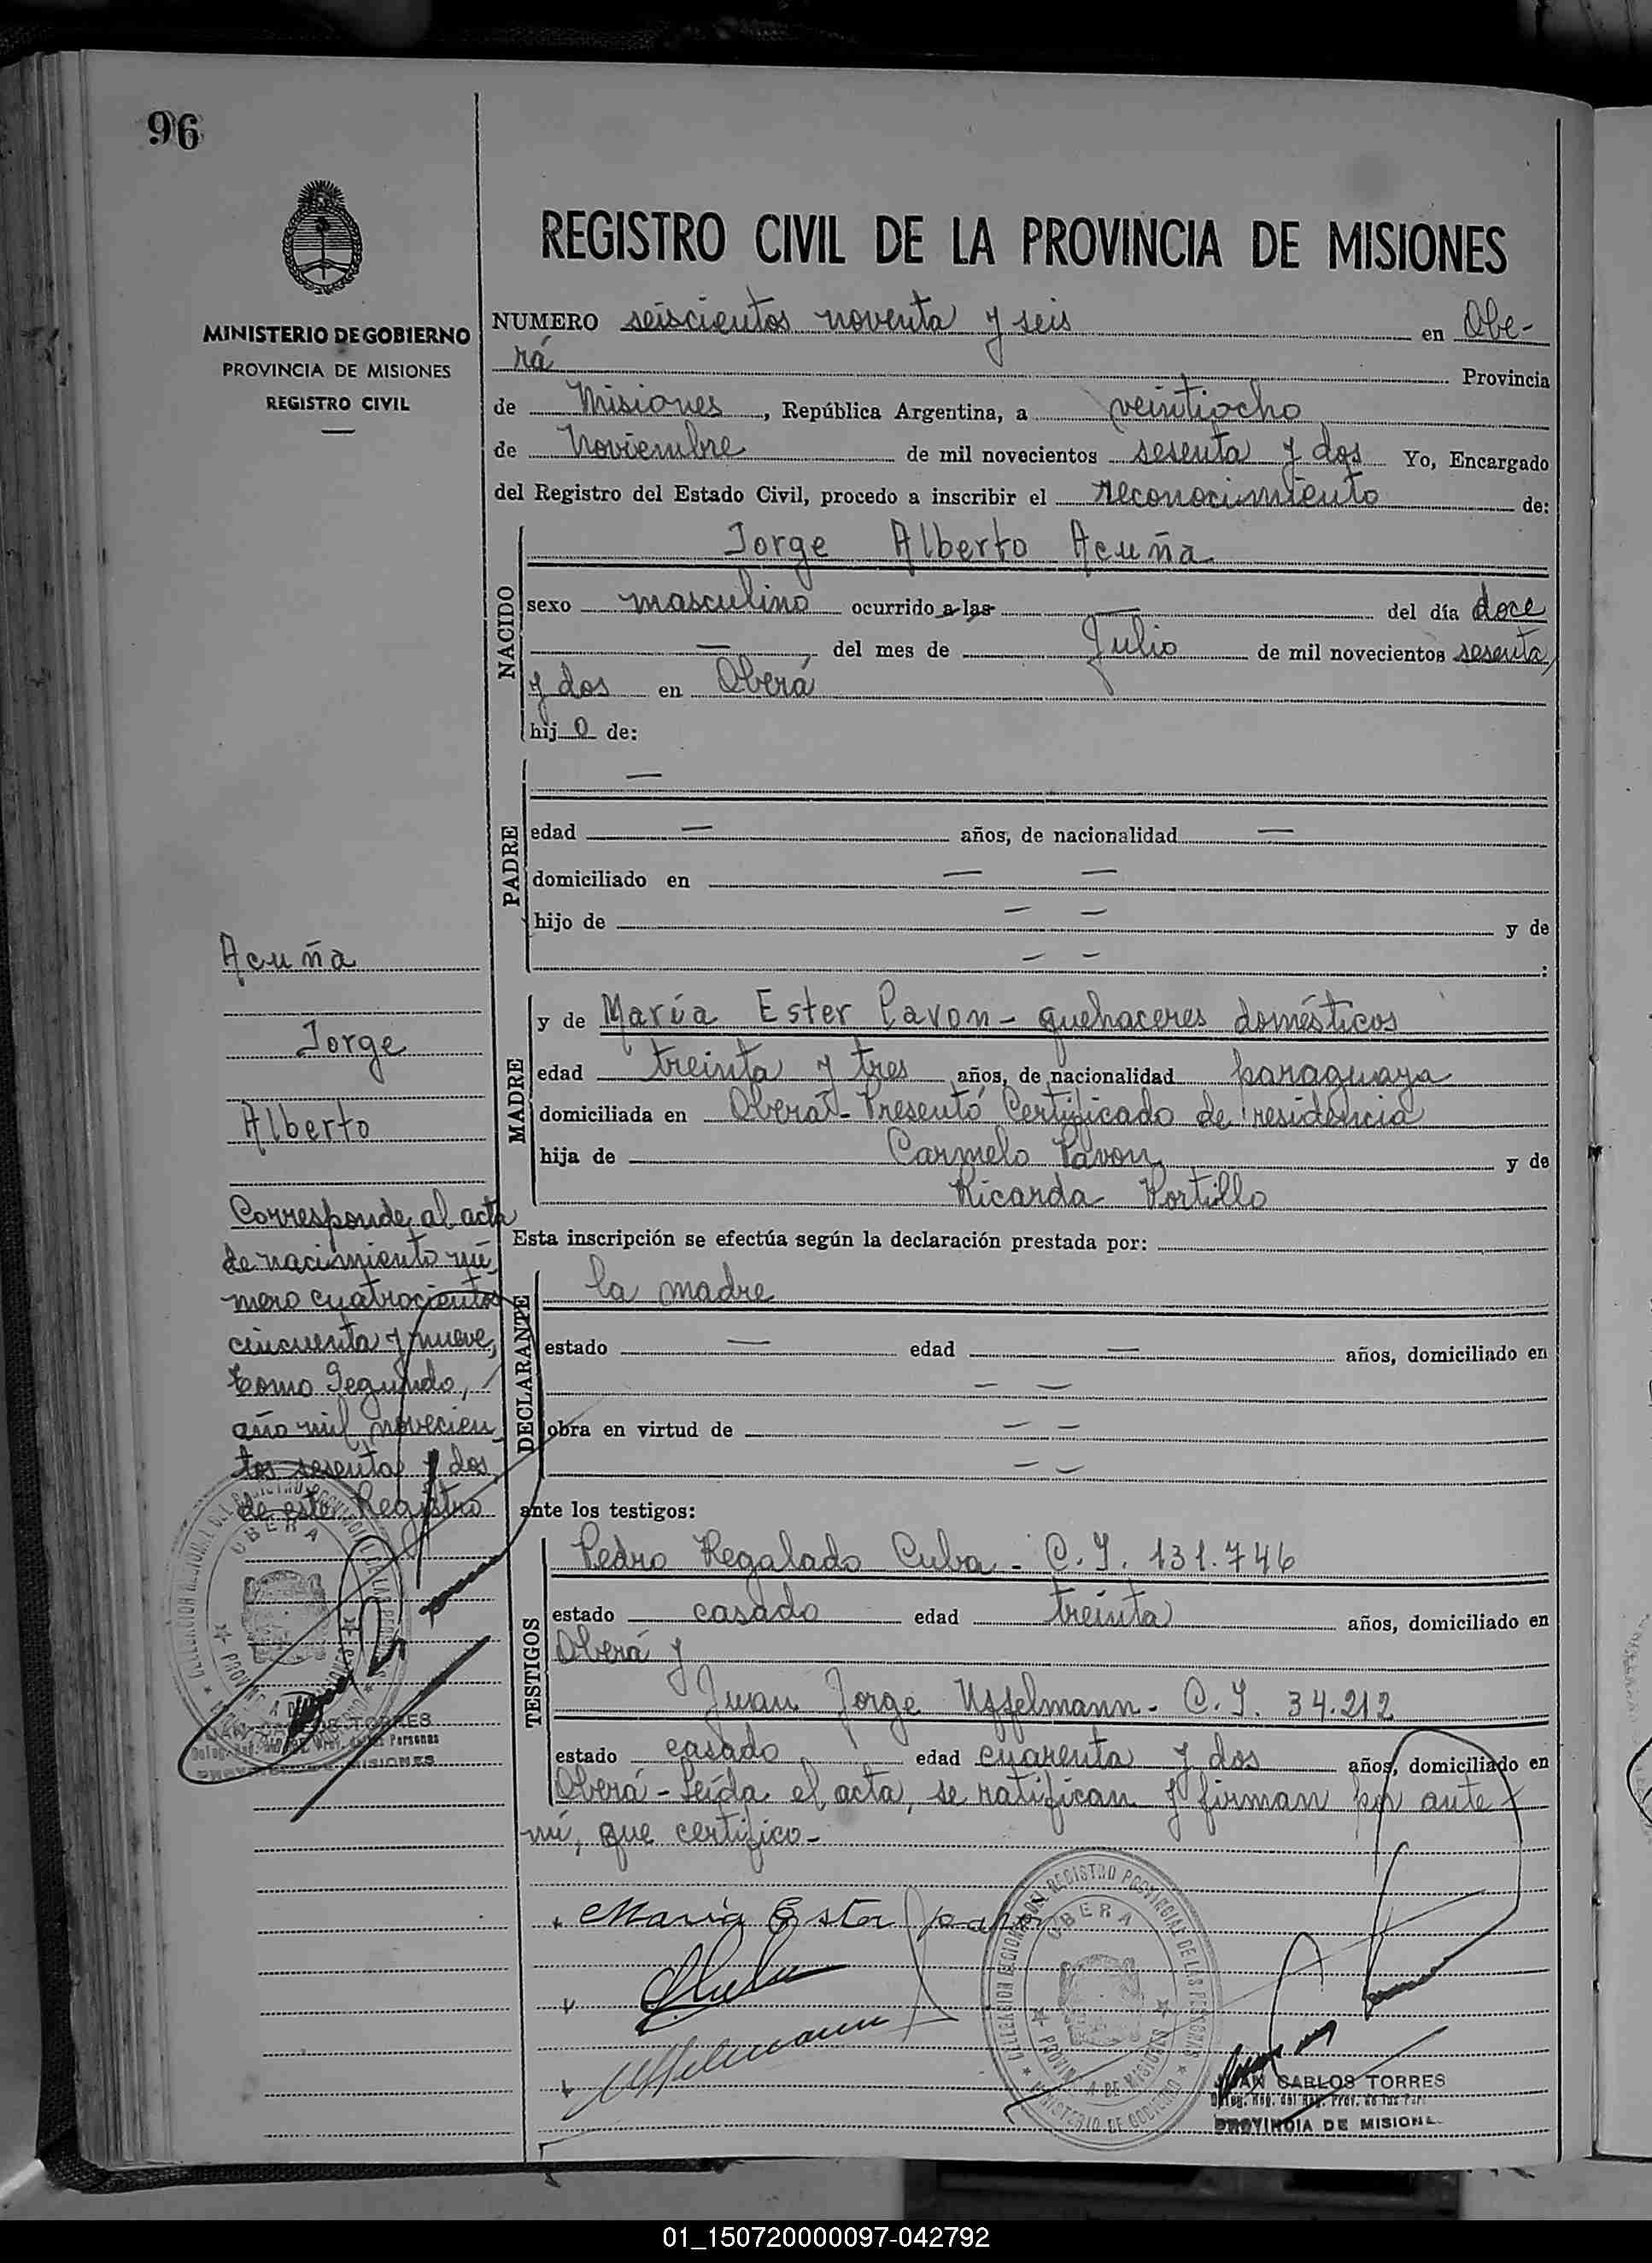 96
REGISTRO CIVIL DE LA PROVINCIA DE MISIONES
MINISTERIO DE GOBIERNO
PROVINCIA DE MISIONES
REGISTRO CIVIL
NUMERO seiscientos noventa y seis en Obe-
rá Provincia
de Misiones, República Argentina, a veintiocho
de Noviembre de mil novecientos sesenta y dos Yo, Encargado
del Registro del Estado Civil, procedo a inscribir el reconocimiento de:
NACIDO
Jorge Alberto Acuña
sexo masculino ocurrido a las — del día doce
— del mes de Julio de mil novecientos sesenta
y dos en Oberá
hij o de:
PADRE
—
edad — años, de nacionalidad —
domiciliado en — —
hijo de — — y de
— — :
MADRE
y de María Ester Pavon - quehaceres domésticos
edad treinta y tres años, de nacionalidad paraguaya
domiciliada en Oberá - Presentó Certificado de residencia
hija de Carmelo Pavon y de
Ricarda Portillo
Esta inscripción se efectúa según la declaración prestada por:
DECLARANTE
la madre
estado — edad — años, domiciliado en
— —
obra en virtud de — —
— —
ante los testigos:
TESTIGOS
Pedro Regalado Cuba - C.I. 131.746
estado casado edad treinta años, domiciliado en
Oberá y
Juan Jorge Uffelmann - C.I. 34.212
estado casado edad cuarenta y dos años, domiciliado en
Oberá - Leída el acta, se ratifican y firman por ante
mí, que certifico -
Acuña
Jorge
Alberto
Corresponde al acta
de nacimiento nú-
mero cuatrocientos
cincuenta y nueve,
tomo Segundo,
año mil novecien-
tos sesenta y dos
de este Registro
OBERA
TORRES
María Ester
Uffelmann
OBERA
REGISTRO PROVINCIAL DE LAS PERSONAS
PROVINCIA DE MISIONES
MINISTERIO DE GOBIERNO
JUAN CARLOS TORRES
PROVINCIA DE MISIONE
01_150720000097-042792